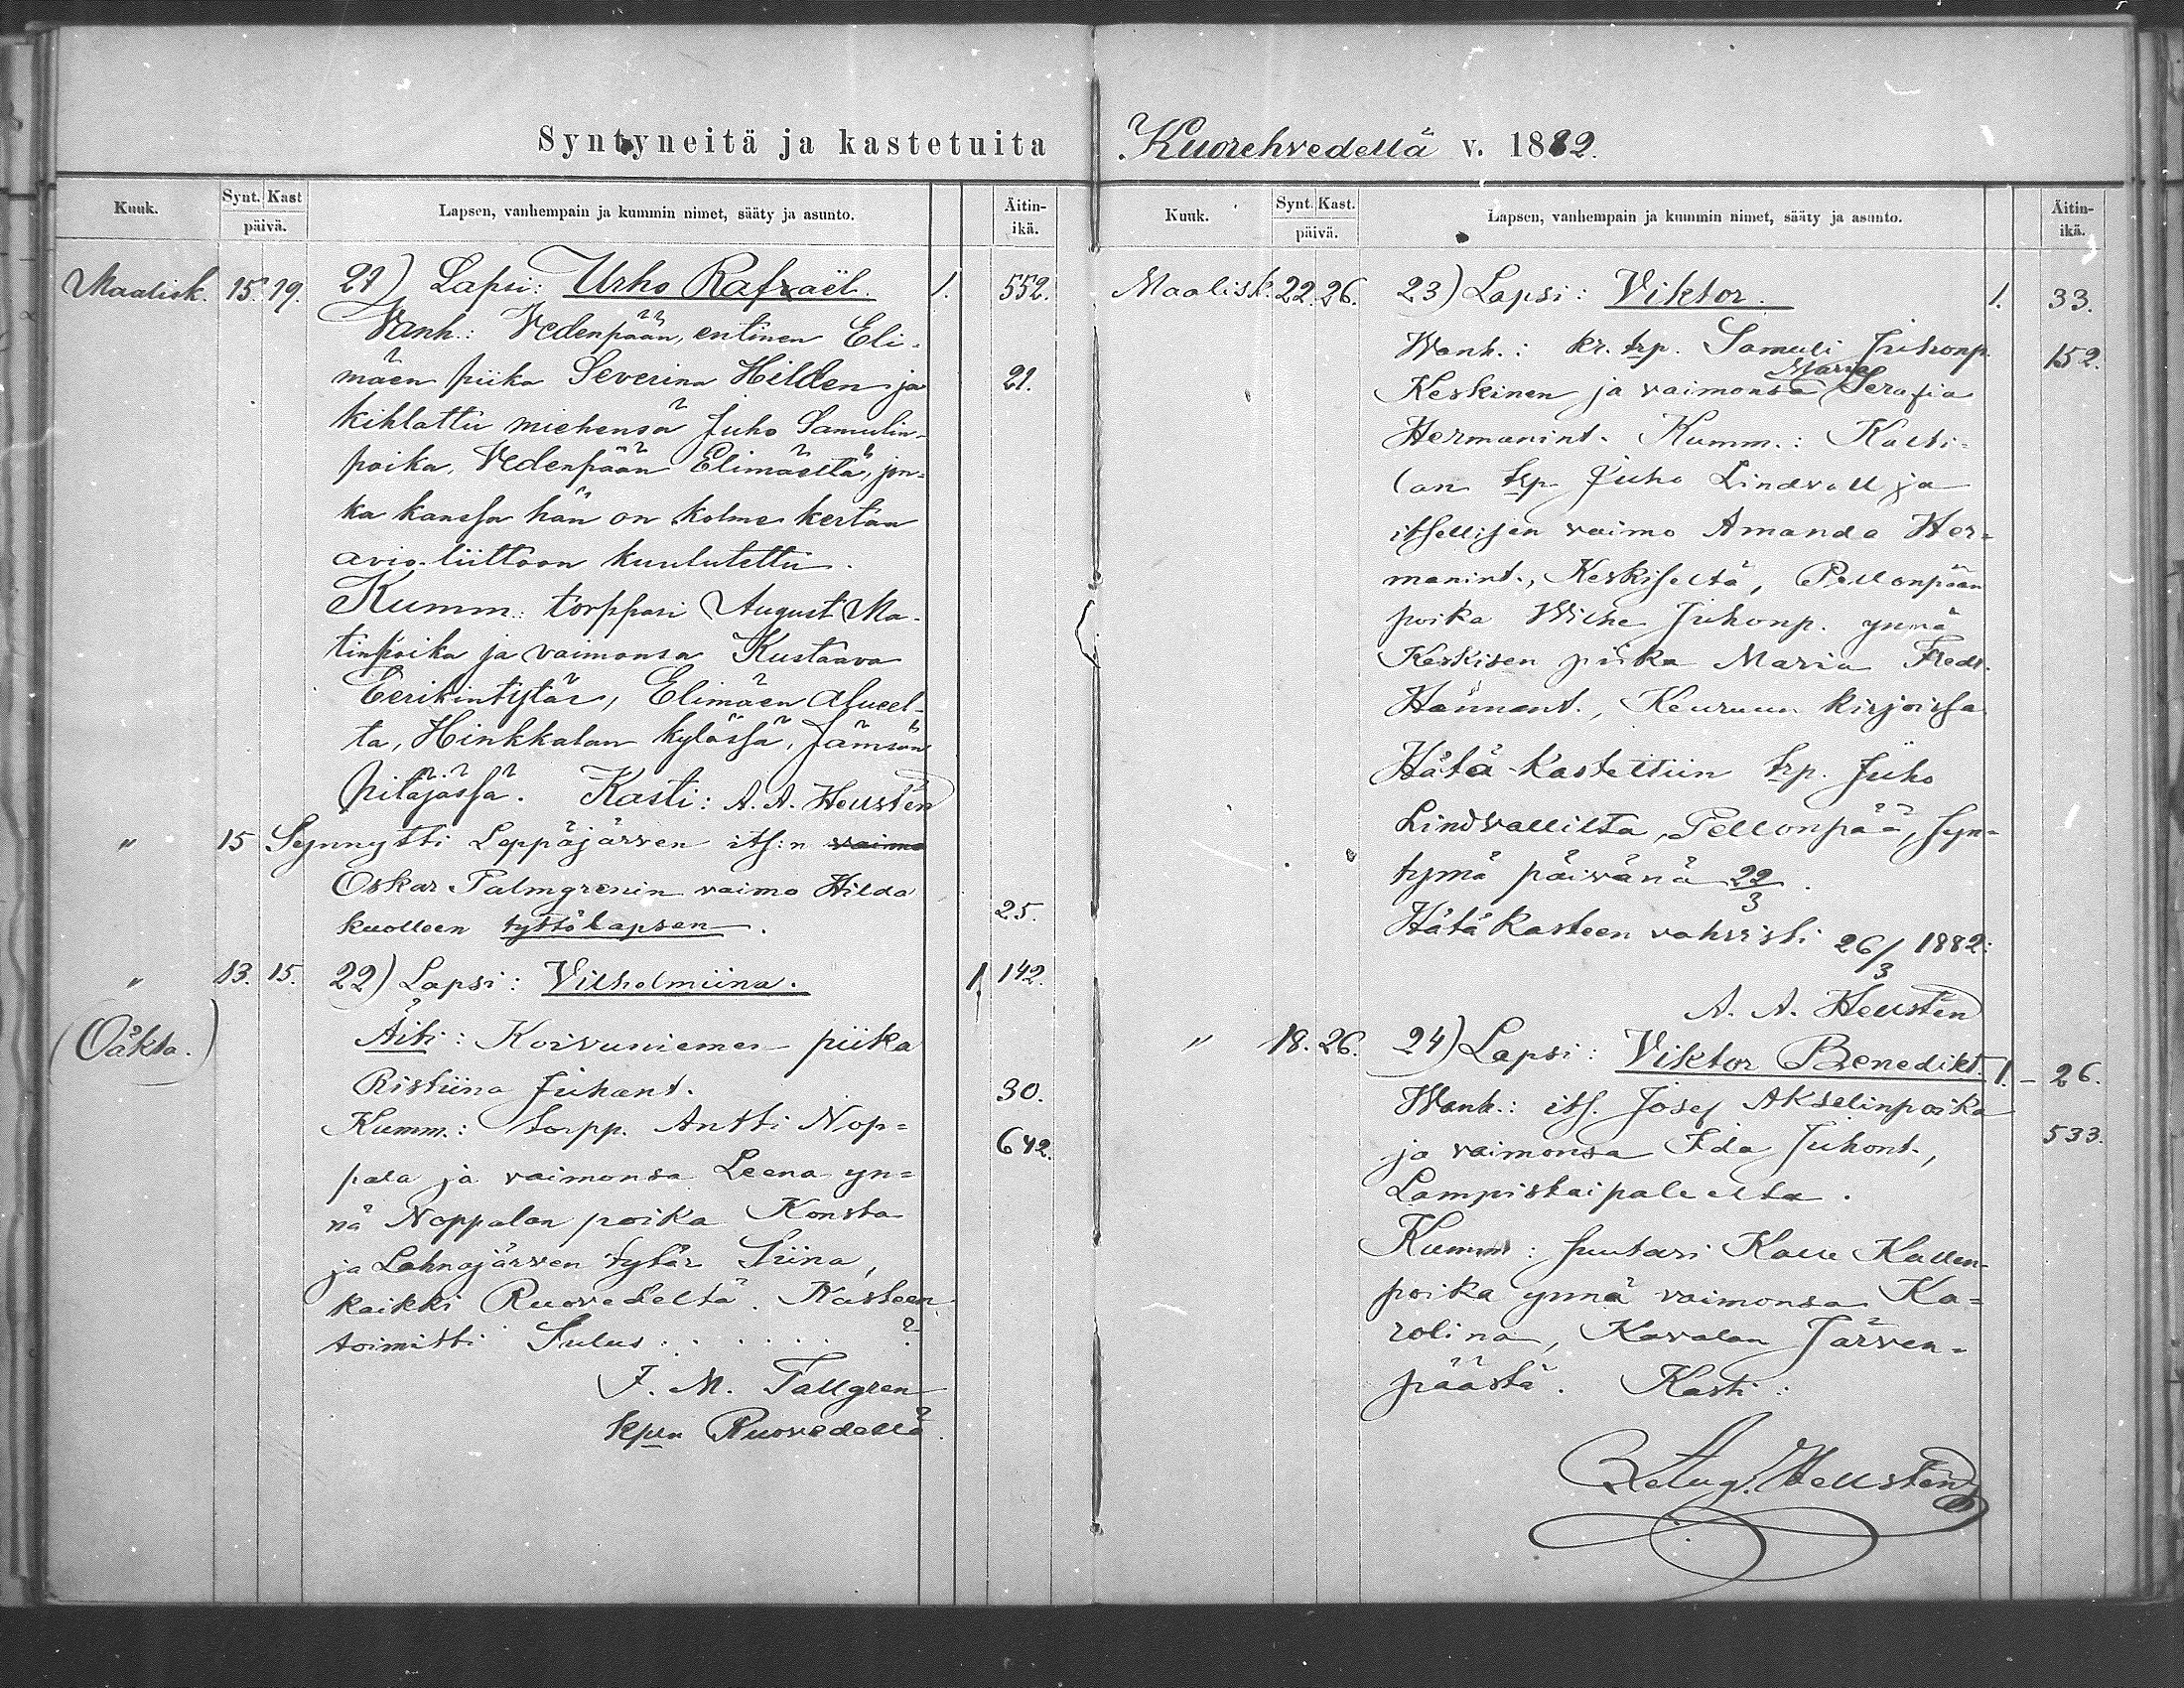 Syntyneitä ja kastetuita
Kuuk. Synt. Kast päivä. Lapsen, vanhempain ja kummin nimet, sääty ja asunto. Äitin-ikä.
Maalisk. 15. 19. 21) Lapsi: Urho Rafaël. 1. 552.
Vanh.: Vedenpään, entinen Eli-
mäen piika Severina Hilden ja 21.
kihlattu miehensä Juho Samulin-
poika, Vedenpään Elimäeltä, jon-
ka kanssa hän on kolme kertaa
avio-liittoon kuulutettu.
Kumm.: torppari August Ma-
tinpoika ja vaimonsa Kustaava
Eerikintytär, Elimäen alueel-
ta, Hinkkalan kylässä, Jämsän
pitäjässä. Kasti: A. A. Hellstén
" 15 Synnytti Leppäjärven its:n vaimo
Oskar Palmgrenin vaimo Hilda
kuolleen tyttölapsen. 25.
" 13. 15. 22) Lapsi: Vilholmiina. 1. 142.
(Oäkta.) Äiti: Koivuniemen piika
Ristiina Juhant. 30.
Kumm.: torpp. Antti Nop= 642.
pala ja vaimonsa Leena yn=
nä Noppalan poika Konsta
ja Lahnajärven tytär Tiina,
kaikki Ruovedeltä. Kasteen
toimitti Sulus: . . . . . ?
J. M. Tallgren
kpln Ruovedellä.
Kuorehvedellä v. 1882.
Kuuk. Synt. Kast. päivä. Lapsen, vanhempain ja kummin nimet, sääty ja asunto. Äitin-ikä.
Maalisk. 22. 26. 23) Lapsi: Viktor. 1. 33.
Wanh.: kr. trp. Samuli Juhonp. 152.
Maria
Keskinen ja vaimonsa Serafia
Hermanint. Kumm.: Kolti-
lan trp. Juho Lindvall ja
itsellisen vaimo Amanda Her=
manint., Keskiseltä, Pellonpään
poika Wilhe Juhonp. ynnä
Keskisen piika Maria Fredr.
Hannant., Keuruun kirjoissa.
Hätä-kastettiin trp. Juho
Lindvallilta, Pellonpää, syn=
tymä päivänä 22/3.
Hätäkasteen vahvisti 26/3 1882:
A. A. Hellstén
" 18. 26. 24) Lapsi: Viktor Benedikt. 1. - 26.
Wanh.: its. Josef Akselinpoika
ja vaimonsa Ida Juhont., 533.
Lampistaipaleelta.
Kumm: suutari Kalle Kallen-
poika ynnä vaimonsa Ka=
rolina, Kavalan Järven=
päästä. Kasti:
Aug. Hellstén